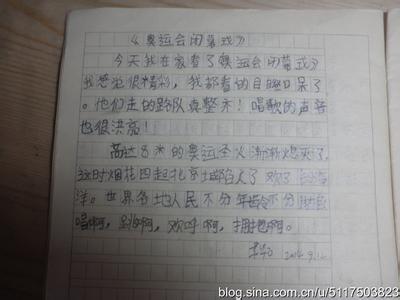 《奥运会闭幕式》
今天我在家看了奥运会闭幕式》
我感觉很精彩,我都看的目瞪口呆了
。他们走的路队真整齐!唱歌的声音
也很洪亮!
高达8米的奥运圣火渐渐熄灭了,
这时烟花四起北京城陷入了欢
洋。世界各地人民不分年龄不分
唱啊,跳啊,欢呼啊,拥抱啊。
2014.9.12
blog.sina.com.cn/u/5117503823